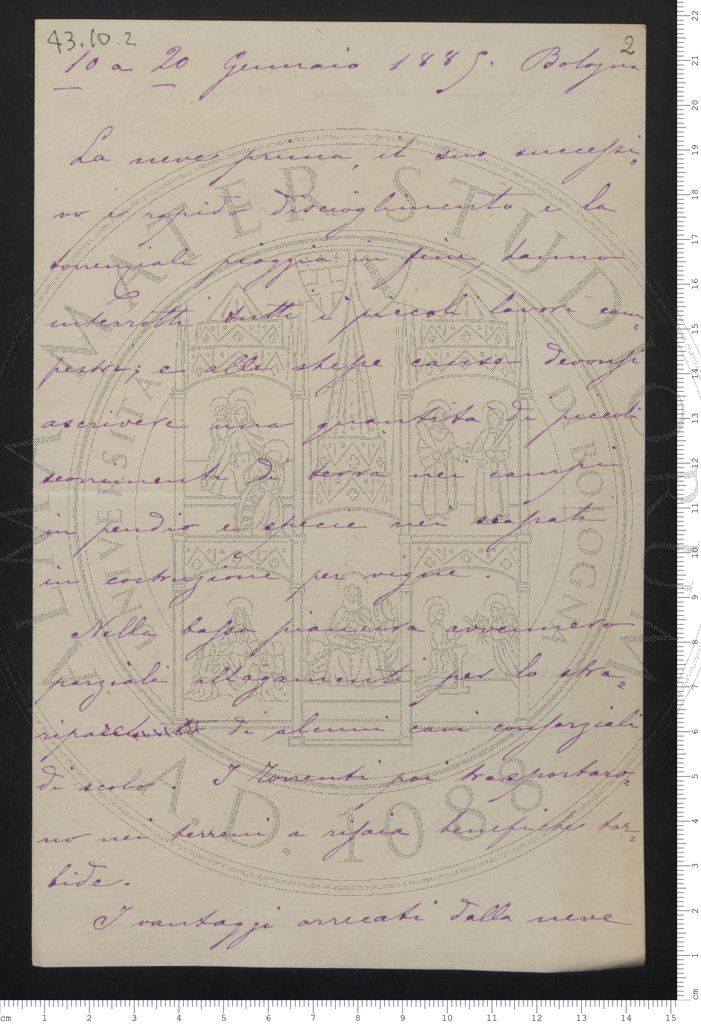 43.10.2
2
10 a 20 Gennaio 1885. Bologna
La neve prima, il suo successi=
vo e rapido discioglimento e la
torrenziale pioggia in fine, hanno
interrotti tutti i piccoli lavori cam=
pestri; e alle stesse cause devonsi
ascrivere una quantità di piccoli
scorrimenti di terra nei campi
in pendio e specie nei scassati
in costruzione per vigne.
Nella bassa pianura avvennero
parziali allagamenti per lo stra=
ripa di alcuni cavi consorziali
di scolo. I Torrenti poi trasportaro=
no nei terreni a risaia benefiche tor=
bide.
I vantaggi arrecati dalla neve
ALMA MATER STUDIORUM
UNIVERSITÀ DI BOLOGNA
A.D. 1088
cm 1 2 3 4 5 6 7 8 9 10 11 12 13 14 15
cm 1 2 3 4 5 6 7 8 9 10 11 12 13 14 15 16 17 18 19 20 21 22